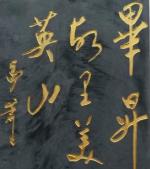 畢昇
故里美
英山